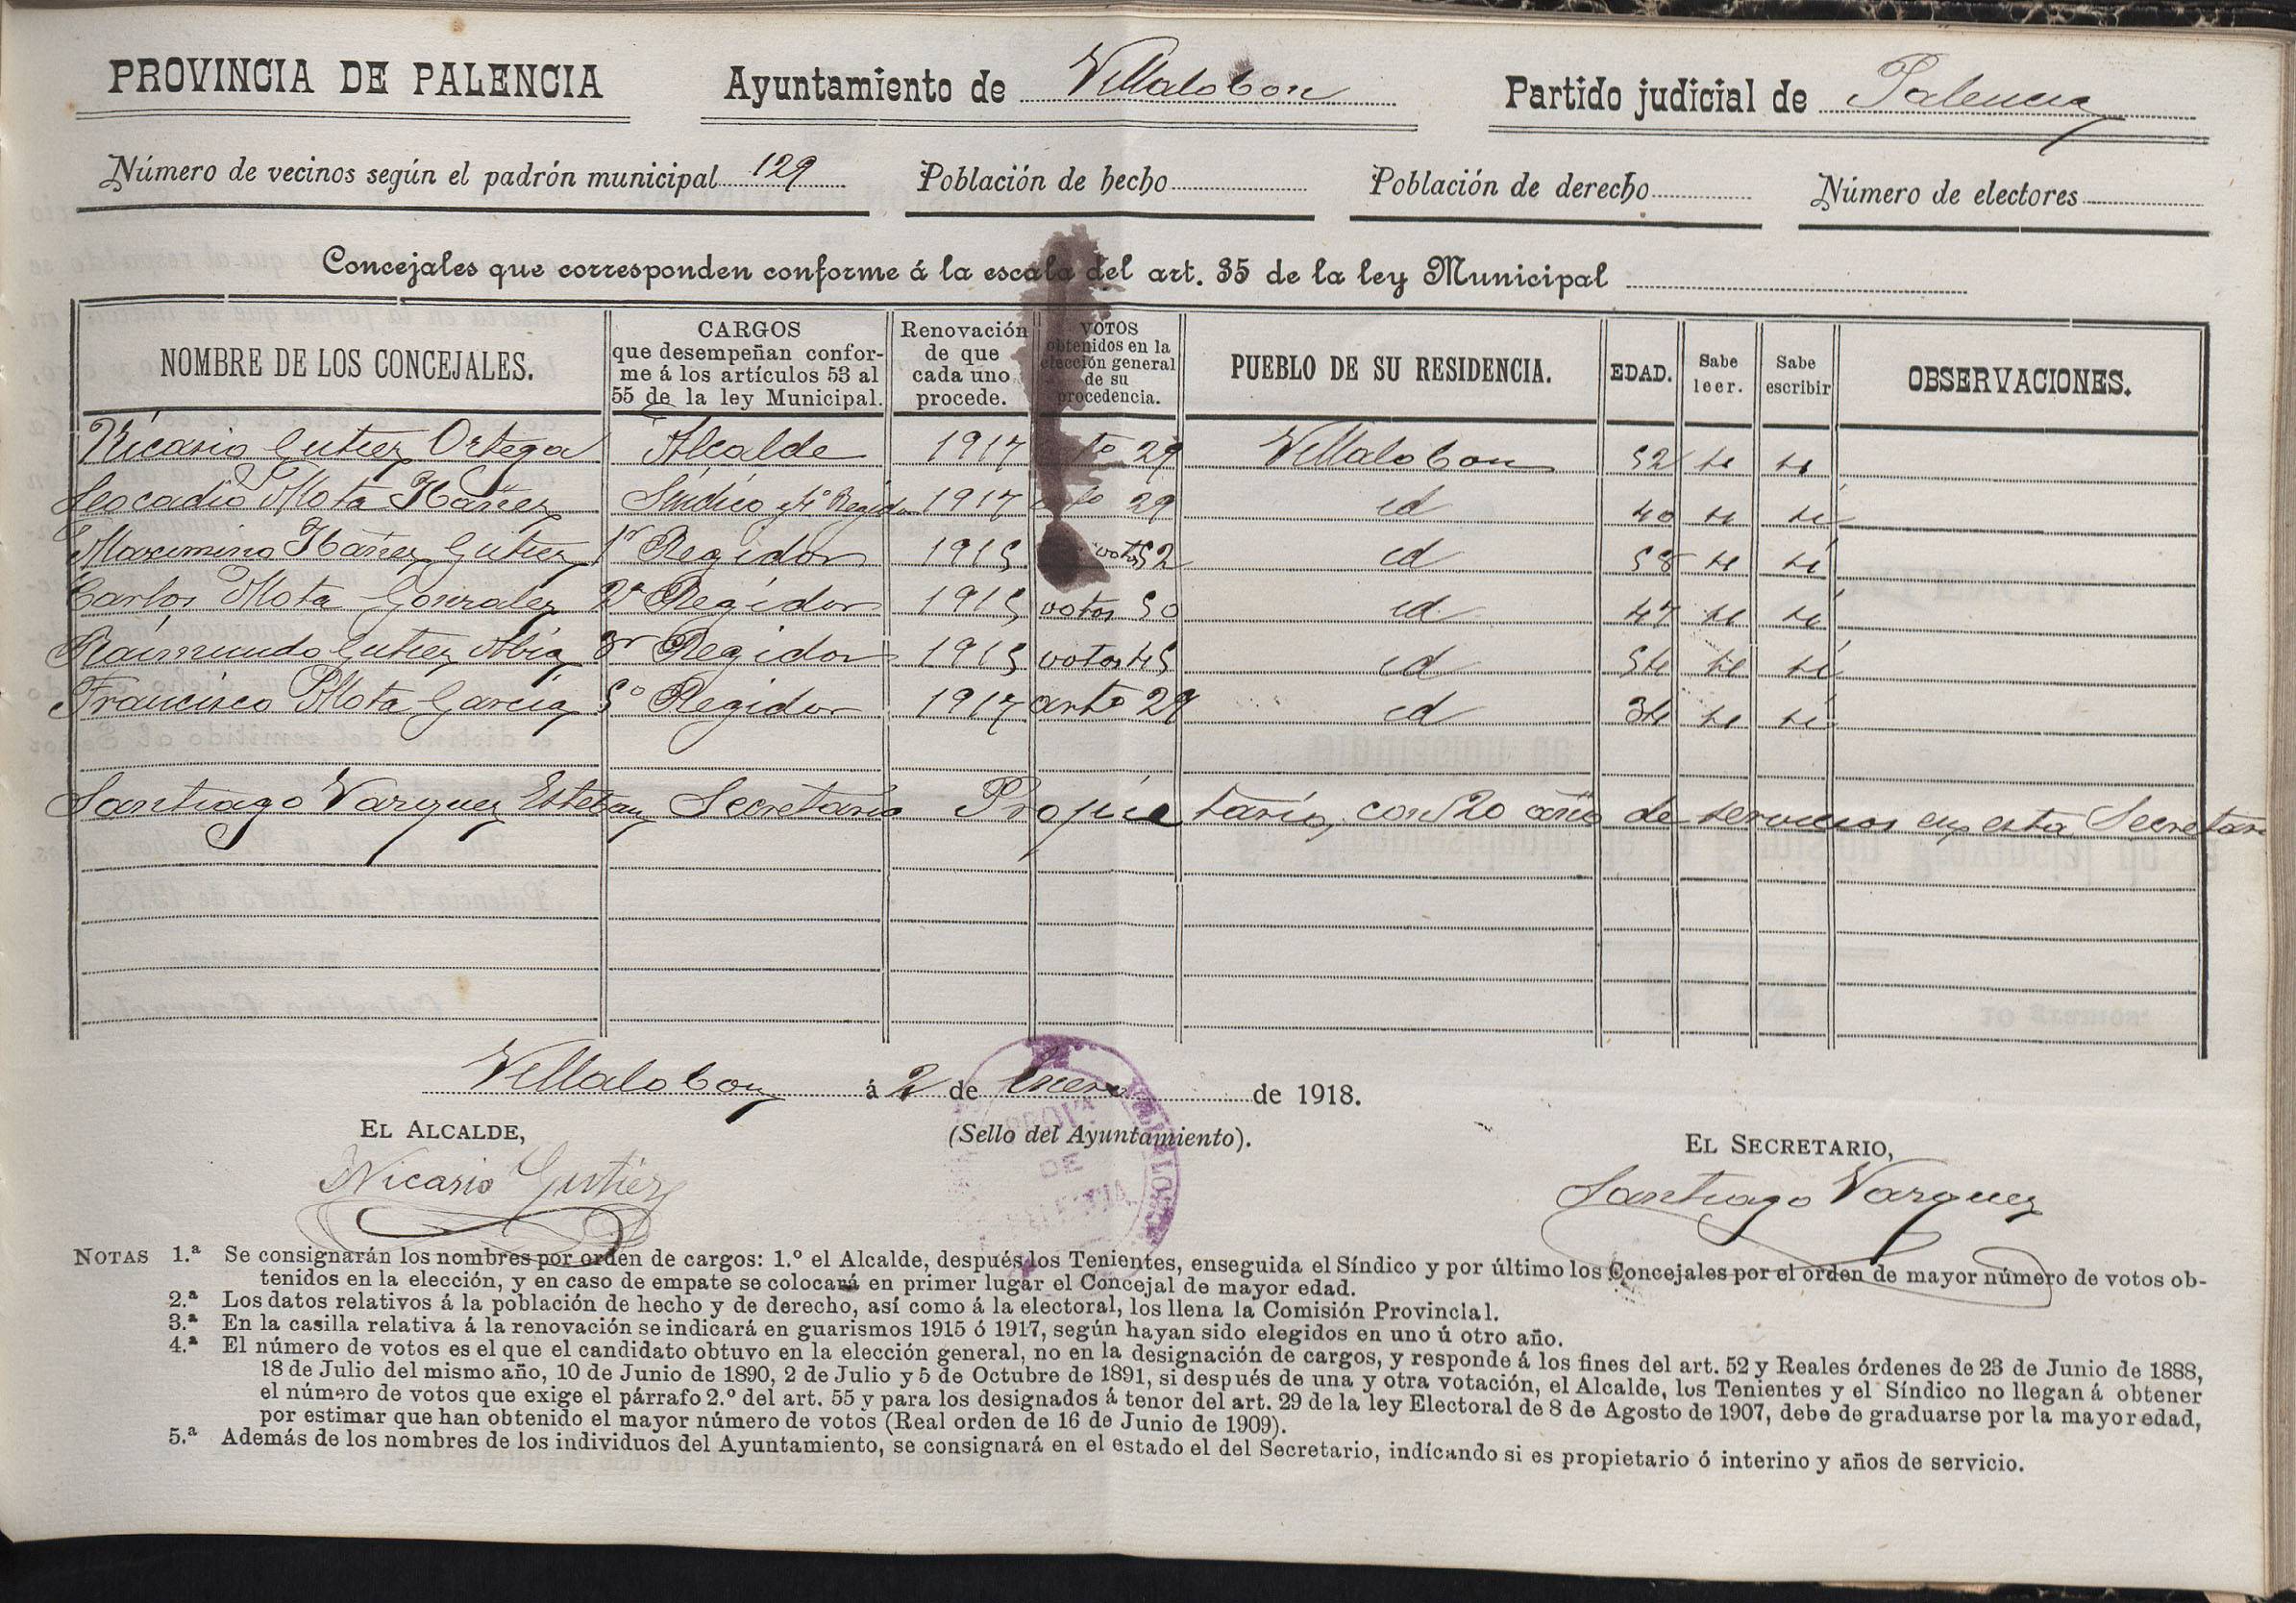 PROVINCIA DE PALENCIA Ayuntamiento de Villalobon Partido judicial de Palencia
Número de vecinos según el padrón municipal 129 Población de hecho Población de derecho Número de electores
Concejales que corresponden conforme á la escala del art. 35 de la ley Municipal
NOMBRE DE LOS CONCEJALES. CARGOS que desempeñan conforme á los artículos 53 al 55 de la ley Municipal. Renovación de que cada uno procede. VOTOS obtenidos en la elección general de su procedencia. PUEBLO DE SU RESIDENCIA. EDAD. Sabe leer. Sabe escribir OBSERVACIONES.
Nicasio Gutiez Ortega Alcalde 1917 29 Villalobon 52 si si
Leocadio Mota Ibañez Síndico y 4º Regidor 1917 29 id 40 si sí
Maximino Ibañez Gutiez 1º Regidor 1915 votos 52 id 58 si sí
Carlos Mota Gonzalez 2º Regidor 1915 votos 50 id 47 si sí
Raimundo Gutiez Abia 3r Regidor 1915 votos 45 id 54 si sí
Francisco Mota Garcia 5º Regidor 1917 arto 29 id 34 si sí
Santiago Vazquez Esteban Secretario Propietario, con 20 años de servicios en esta Secretar
Villalobon á 2 de Enero de 1918.
EL ALCALDE, (Sello del Ayuntamiento). EL SECRETARIO,
PROVA
DE
Nicasio Gutiez Santiago Vazquez
NOTAS 1.ª Se consignarán los nombres por orden de cargos: 1.º el Alcalde, después los Tenientes, enseguida el Síndico y por último los Concejales por el orden de mayor número de votos ob-
tenidos en la elección, y en caso de empate se colocará en primer lugar el Concejal de mayor edad.
2.ª Los datos relativos á la población de hecho y de derecho, así como á la electoral, los llena la Comisión Provincial.
3.ª En la casilla relativa á la renovación se indicará en guarismos 1915 ó 1917, según hayan sido elegidos en uno ú otro año.
4.ª El número de votos es el que el candidato obtuvo en la elección general, no en la designación de cargos, y responde á los fines del art. 52 y Reales órdenes de 23 de Junio de 1888,
18 de Julio del mismo año, 10 de Junio de 1890, 2 de Julio y 5 de Octubre de 1891, si después de una y otra votación, el Alcalde, los Tenientes y el Síndico no llegan á obtener
el número de votos que exige el párrafo 2.º del art. 55 y para los designados á tenor del art. 29 de la ley Electoral de 8 de Agosto de 1907, debe de graduarse por la mayor edad,
por estimar que han obtenido el mayor número de votos (Real orden de 16 de Junio de 1909).
5.ª Además de los nombres de los individuos del Ayuntamiento, se consignará en el estado el del Secretario, indicando si es propietario ó interino y años de servicio.